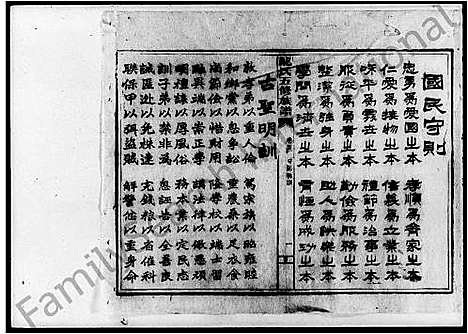 國民守則
忠勇爲愛國之本 孝順爲齊家之本
仁愛爲接物之本 信義爲立業之本
和平爲處世之本 禮節爲治事之本
服從爲負責之本 勤儉爲服務之本
整潔爲強身之本 助人爲快樂之本
學問爲濟世之本 有恆爲成功之本
氏五修族譜
古聖明訓
敦孝弟以重人倫 篤宗族以昭雍睦
和鄉黨以息爭訟 重農桑以足衣食
尚節儉以惜財用 隆學校以端士習
黜異端以崇正學 講法律以儆愚頑
明禮讓以厚風俗 務本業以定民志
訓子弟以禁非爲 息誣告以全善良
誡匿逃以免株連 完錢糧以省催科
聯保甲以弭盜賊 解讐忿以重身命
Family
National